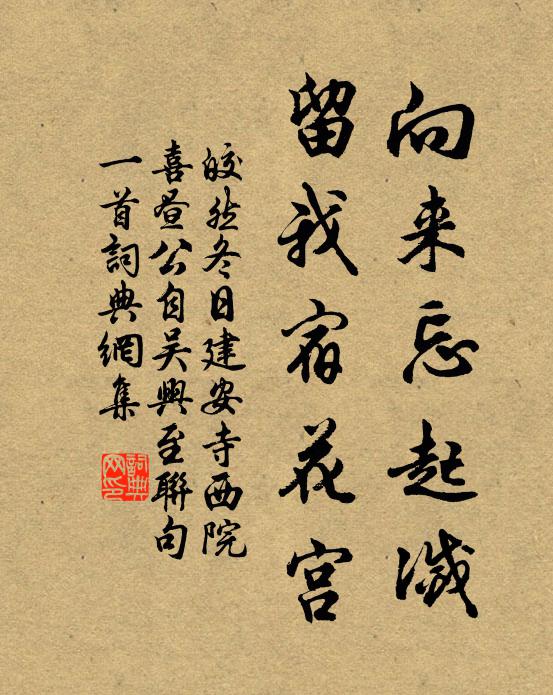 向来忘起滅
留我宿花宮
皎然冬日建安寺西院
喜昼公自吴興至聯句
一首詞典網集
詞典
网印